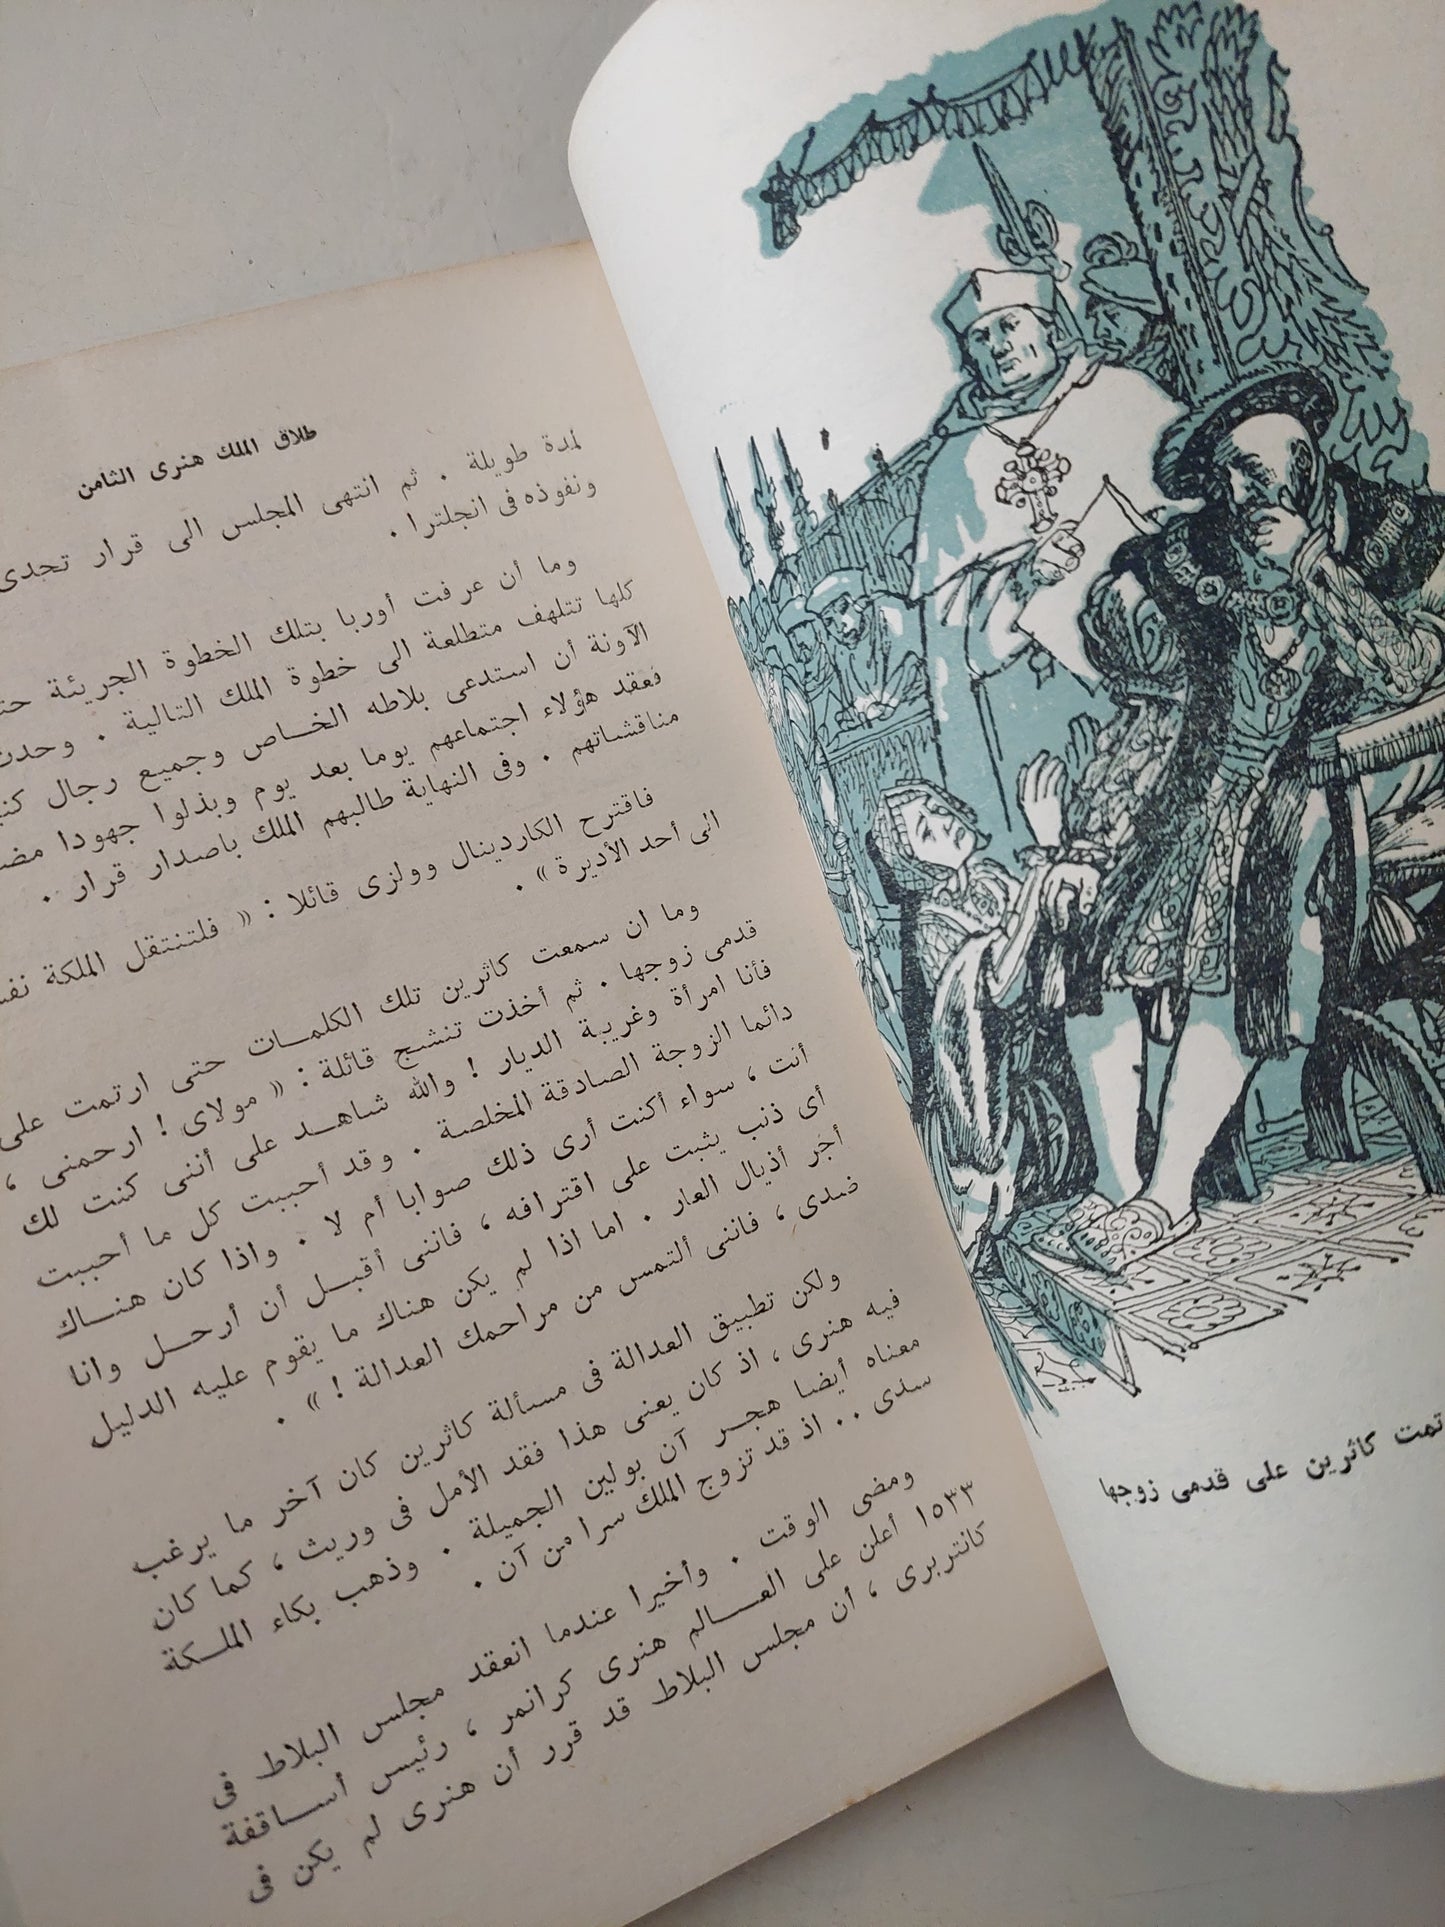 طلاق الملك هنرى الثامن
لمدة طويلة . ثم انتهى المجلس الى قرار تجدى
ونفوذه فى انجلترا .
وما أن عرفت أوربا بتلك الخطوة الجريئة
كلها تتلهف متطلعة الى خطوة الملك التالية . وحدث
الآونة أن استدعى بلاطه الخاص وجميع رجال
فعقد هؤلاء اجتماعهم يوما بعد يوم وبذلوا جهودا
مناقشاتهم . وفى النهاية طالبهم الملك باصدار قرار .
فاقترح الكاردينال وولزى قائلا : « فلتنتقل الملكة
الى أحد الأديرة » .
وما ان سمعت كاثرين تلك الكلمات حتى ارتمت على
قدمى زوجها . ثم أخذت تنشج قائلة : « مولاى ! ارحمنى ،
فأنا امرأة وغريبة الديار ! والله شاهد على أننى كنت لك
دائما الزوجة الصادقة المخلصة . وقد أحببت كل ما أحببت
أنت ، سواء أكنت أرى ذلك صوابا أم لا . واذا كان هناك
أى ذنب يثبت على اقترافه ، فاننى أقبل أن أرحل وانا
أجر أذيال العار . اما اذا لم يكن هناك ما يقوم عليه الدليل
ضدى ، فاننى ألتمس من مراحمك العدالة ! » .
ولكن تطبيق العدالة فى مسألة كاثرين كان آخر ما يرغب
فيه هنرى ، اذ كان يعنى هذا فقد الأمل فى وريث ، كما كان
معناه أيضا هجر آن بولين الجميلة . وذهب بكاء الملكة
سدى . . اذ قد تزوج الملك سرا من آن .
ومضى الوقت . وأخيرا عندما انعقد مجلس البلاط فى
١٥٣٣ أعلن على العالم هنرى كرانمر ، رئيس أساقفة
كانتربرى ، أن مجلس البلاط قد قرر أن هنرى لم يكن فى
كاثرين على قدمى زوجها